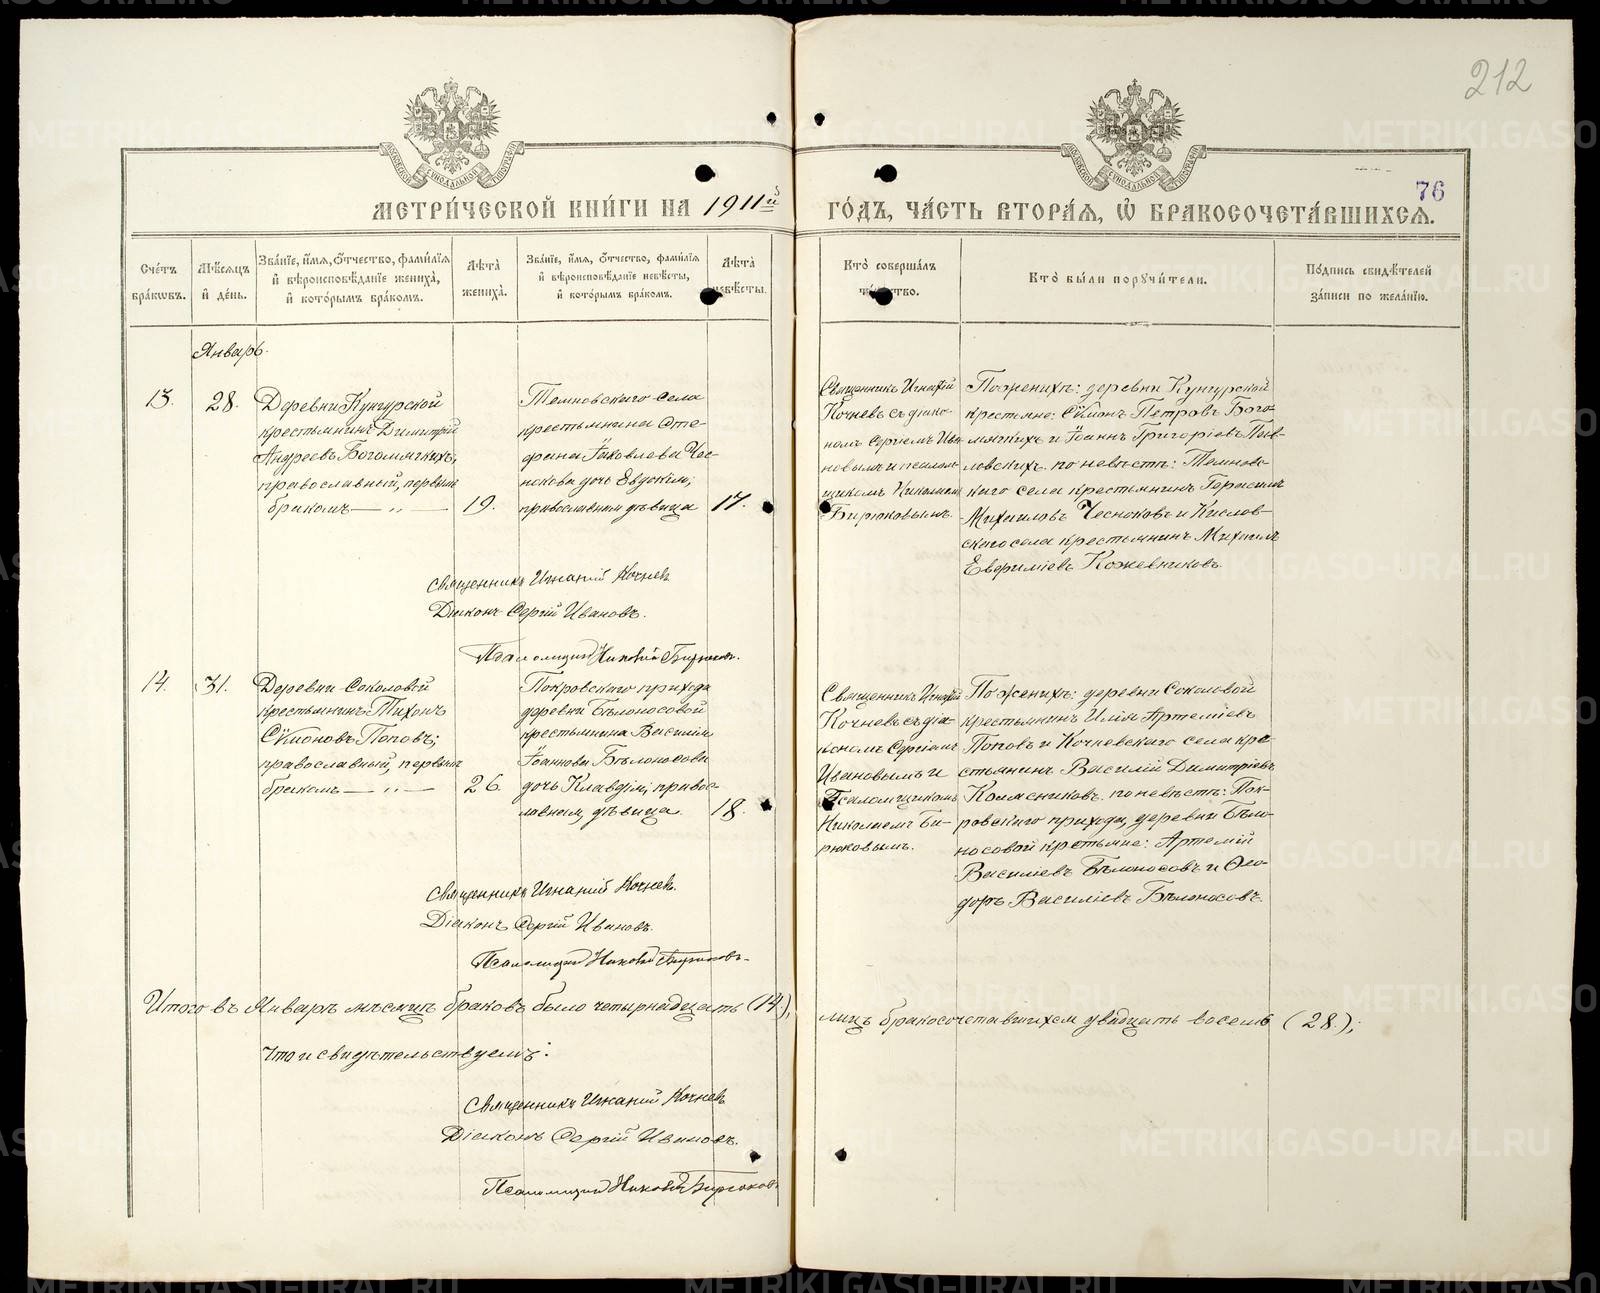 212
76
МЕТРИ́ЧЕСКОЙ КНИ́ГИ НА 1911й ГО́ДЪ, ЧА́СТЬ ВТОРА́Я, Ѽ БРАКОСОЧЕТА́ВШИХСЯ.
Сче́тъ бра́кωвъ.
Мѣ́сяцъ и҆ де́нь.
Зва́нїе, и҆́мя, ѻ҆́тчество, фами́лїя и҆ вѣроисповѣ́данїе жениха̀, и҆ кото́рымъ бра́комъ.
Лѣ́та жениха̀.
Зва́нїе, и҆́мя, ѻ҆́тчество, фами́лїя и҆ вѣроисповѣ́данїе невѣ́сты, и҆ кото́рымъ бра́комъ.
Лѣ́та невѣ́сты.
Кто̀ соверша́лъ
Кто̀ бы́ли порꙋчи́тели.
По́дпись свидѣ́телей за́писи по жела́нїю.
Январь.
13.
28.
Деревни Кунгурской
крестьянинъ Димитрій
Андреевъ Богомягкихъ,
православный, первымъ
бракомъ — „ —
19.
Темновскаго села
крестьянина Сте-
фана Іаковлева Чес-
нокова дочь Евдокія,
православная, дѣвица
17.
Священникъ Игнатій
Кочневъ съ діако-
номъ Сергіемъ Ива-
новымъ и псалом-
щикомъ Николаемъ
Бирюковымъ.
По женихѣ: деревни Кунгурской
крестьяне: Сѵмеонъ Петровъ Бого-
мягкихъ и Іоаннъ Григоріевъ
по невѣстѣ: Темнов-
скаго села крестьянинъ Герасимъ
Михаиловъ Чесноковъ и Кислов-
скаго села крестьянинъ Михаилъ
Евфиміевъ Кожевниковъ.
Священникъ Игнатій Кочневъ
Діаконъ Сергій Ивановъ.
Псаломщикъ Николай Бирюковъ.
14.
31.
Деревни Соколовой
крестьянинъ Тихонъ
Сѵмеоновъ Поповъ;
православный, первымъ
бракомъ — „ —
26.
Покровскаго прихода
деревни Бѣлоносовой
крестьянина Василія
Іоаннова Бѣлоносова
дочь Клавдія, правос-
лавная, дѣвица.
18.
Священникъ Игнатій
Кочневъ съ діа-
кономъ Сергіемъ
Ивановымъ и
Псаломщикомъ
Николаемъ Би-
рюковымъ.
По женихѣ: деревни Соколовой
крестьянинъ Илія Артеміевъ
Поповъ и Кочневскаго села кре-
стьянинъ Василій Димитріевъ
Колясниковъ. по невѣстѣ: Пок-
ровскаго прихода, деревни Бѣло-
носовой крестьяне: Артемій
Василіевъ Бѣлоносовъ и Ѳео-
доръ Василіевъ Бѣлоносовъ.
Священникъ Игнатій Кочневъ.
Діаконъ Сергій Ивановъ.
Псаломщикъ Николай Бирюковъ.
Итого въ Январѣ мѣсяцѣ браковъ было четырнадцать (14), лицъ бракосочетавшихся двадцать восемь (28.);
что и свидѣтельствуемъ:
Священникъ Игнатій Кочневъ
Діаконъ Сергій Ивановъ.
Псаломщикъ Николай Бирюковъ
METRIKI.GASO-URAL.RU